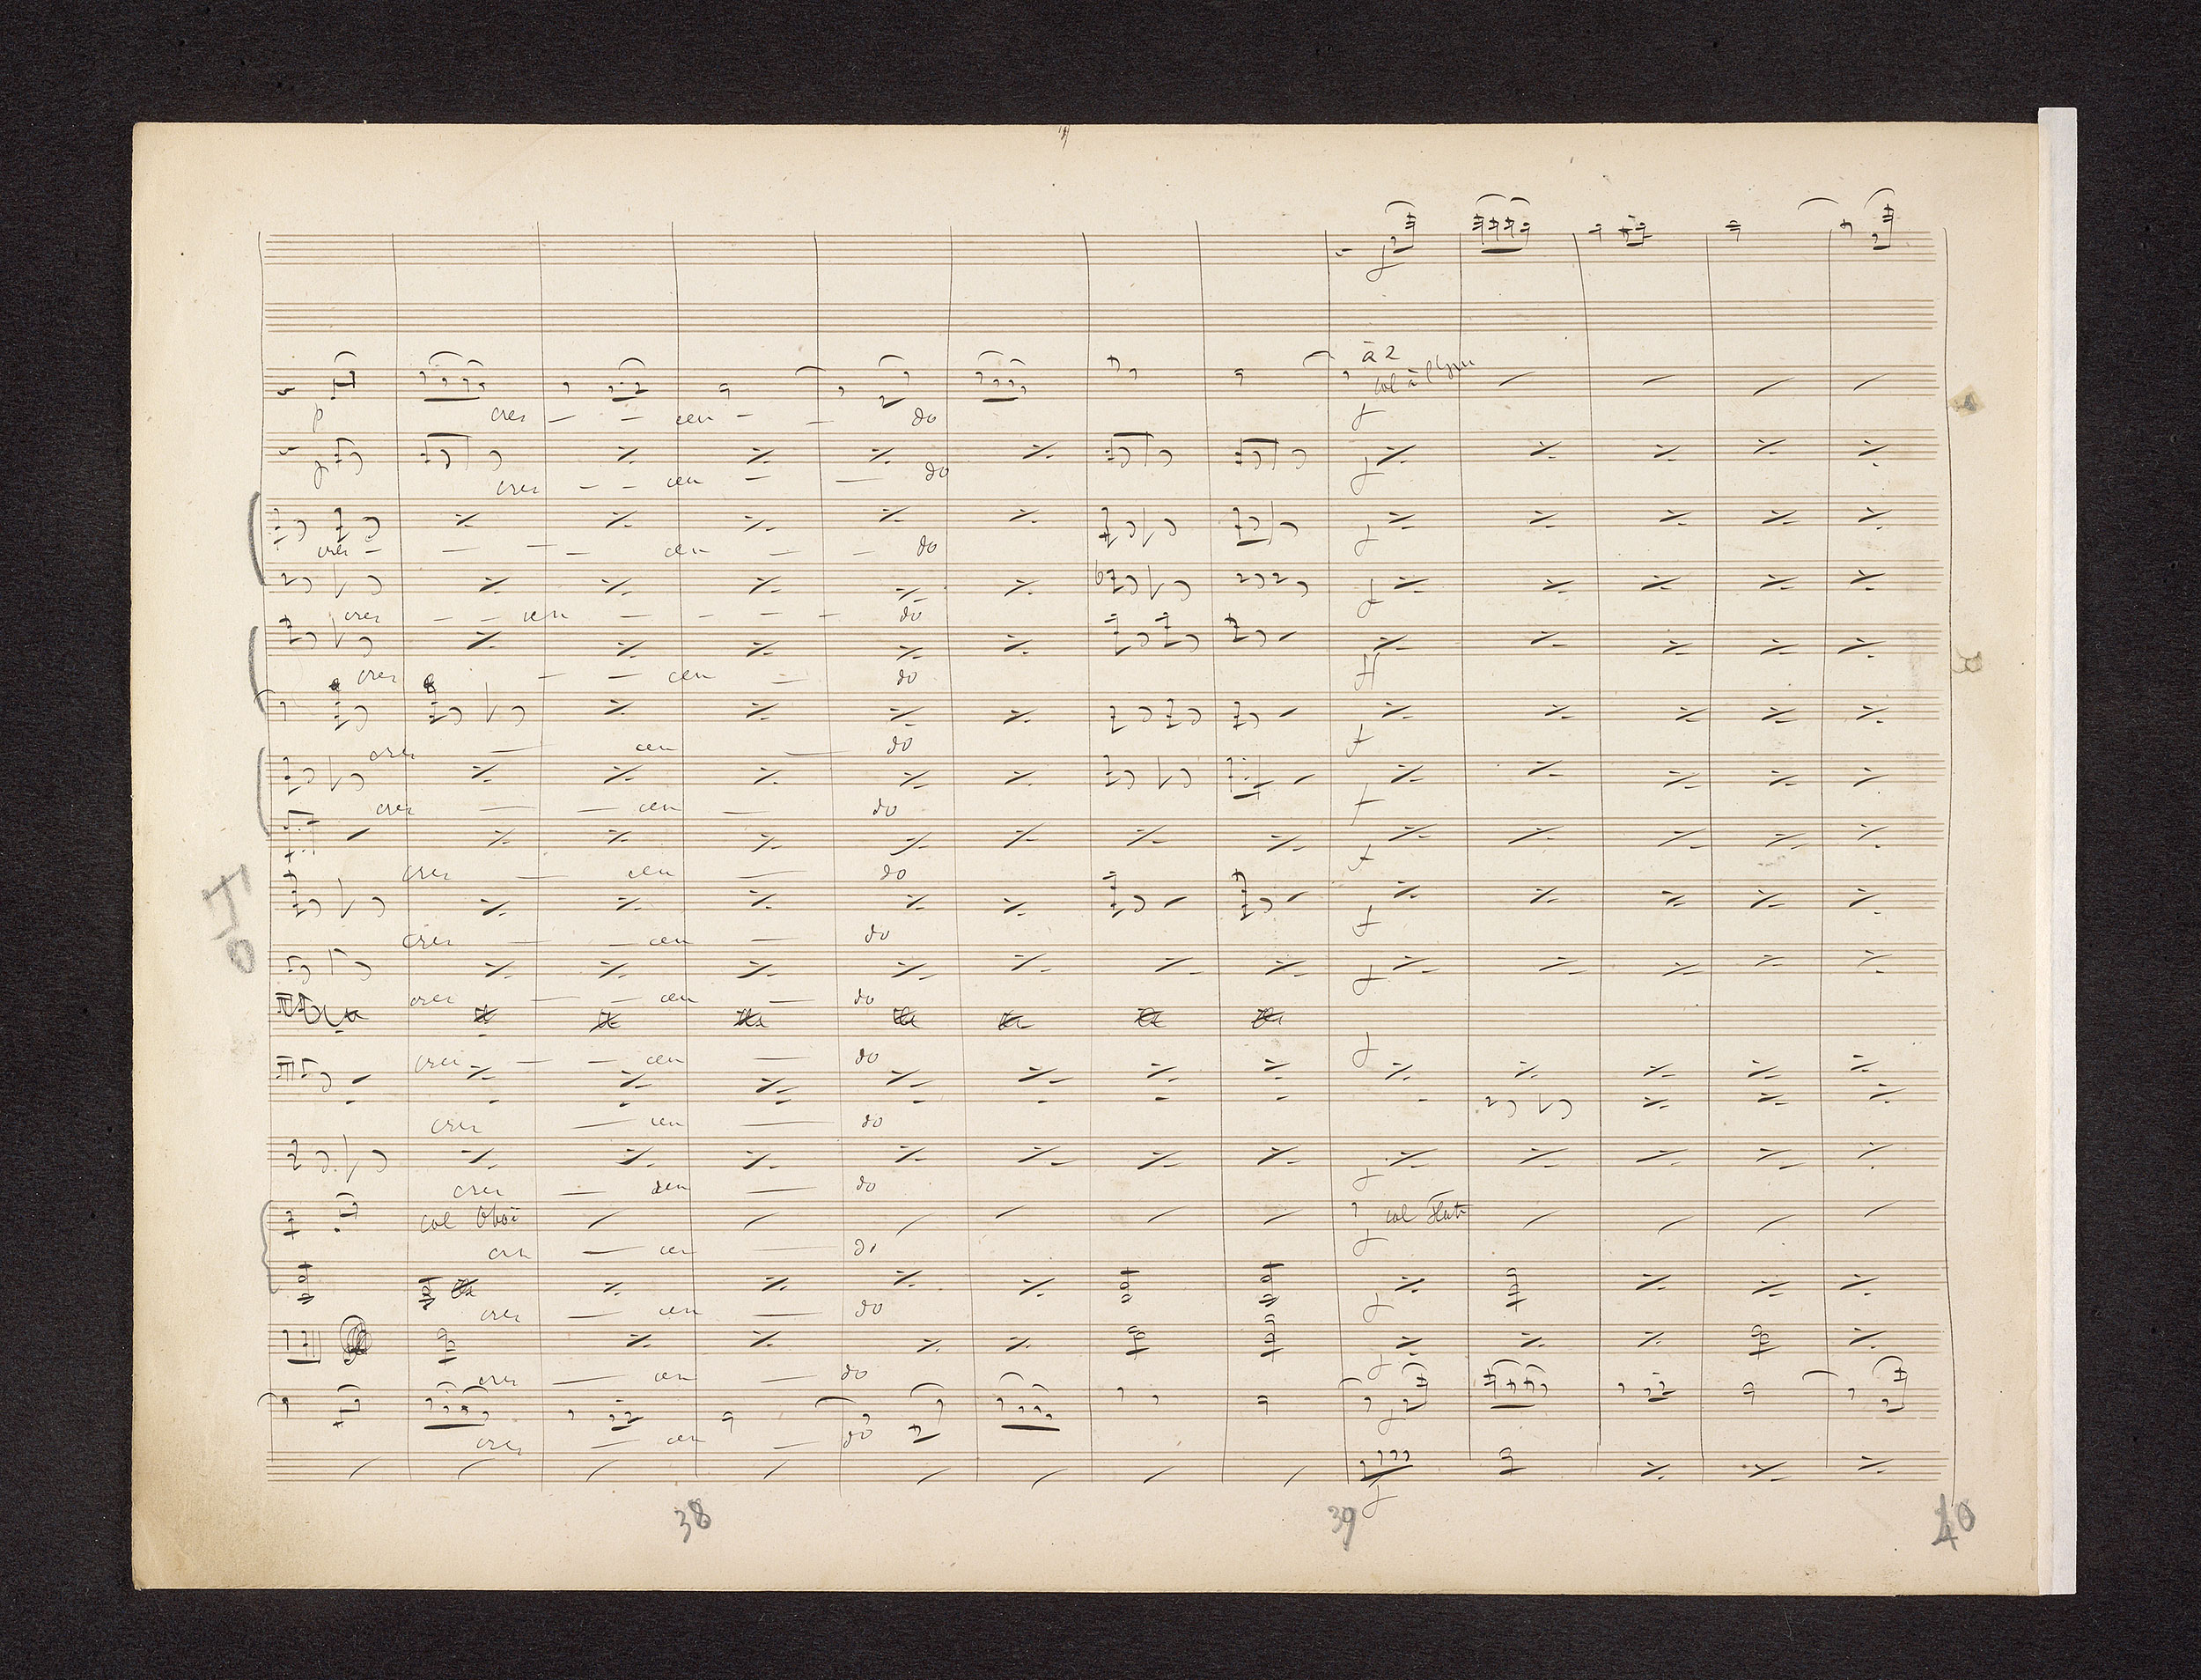 à 2
col
f
p cres — — cen — — do
f
cres — — cen — — do
f
cres — — — — cen — — do
f
cres — — cen — — — — do
f
cres — — cen — do
ff
cres — cen — do
f
cres — — cen — do
f
cres — cen — do
f
cres — — cen — do
f
cres — — cen — do
f
cres — — cen — do
f
cres — cen — do
cres — cen — do
f
col Oboi
col Flute
cres — cen — do
f
cres — cen — do
f
cres — cen — do
f
cres — cen — do
f
f
38 39 40